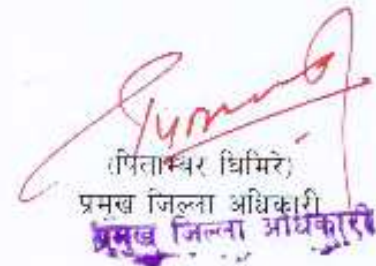 (पिताम्बर घिमिरे)
प्रमुख जिल्ला अधिकारी
प्रमुख जिल्ला अधिकारी